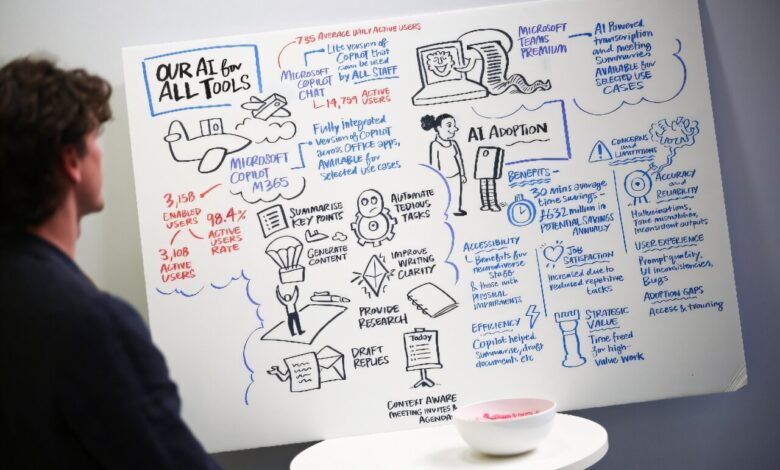 OUR AI for
ALL TOOLS
735 AVERAGE DAILY ACTIVE USERS
MICROSOFT
COPILOT
CHAT
Lite version of
COPILOT that
can be used
by ALL STAFF
14,759 ACTIVE
USERS
MICROSOFT
TEAMS
PREMIUM
AI Powered
transcription
and meeting
summaries
AVAILABLE for
SELECTED USE
CASES
MICROSOFT
COPILOT
M365
Fully integrated
version of COPILOT
across OFFICE apps,
AVAILABLE for
selected use cases
3,158
ENABLED
USERS
98.4%
ACTIVE
USERS
RATE
3,108
ACTIVE
USERS
SUMMARISE
KEY POINTS
AUTOMATE
TEDIOUS
TASKS
GENERATE
CONTENT
IMPROVE
WRITING
CLARITY
PROVIDE
RESEARCH
DRAFT
REPLIES
Today
CONTEXT AWARE
MEETING INVITES &
AGENDAS
AI ADOPTION
BENEFITS
30 mins average
time savings -
£632 million in
POTENTIAL SAVINGS
ANNUALLY
ACCESSIBILITY
Benefits for
neurodiverse
staff
& those with
PHYSICAL
IMPAIRMENTS
JOB
SATISFACTION
Increased due to
reduced repetitive
tasks
EFFICIENCY
Copilot helped
summarise, draft
documents etc
STRATEGIC
VALUE
Time freed
for high-
value work
CONCERNS
and
LIMITATIONS
ACCURACY
and
RELIABILITY
Hallucinations,
Tone mismatches,
inconsistent outputs
USER EXPERIENCE
Prompt quality,
UI inconsistencies,
Bugs
ADOPTION GAPS
Access & training